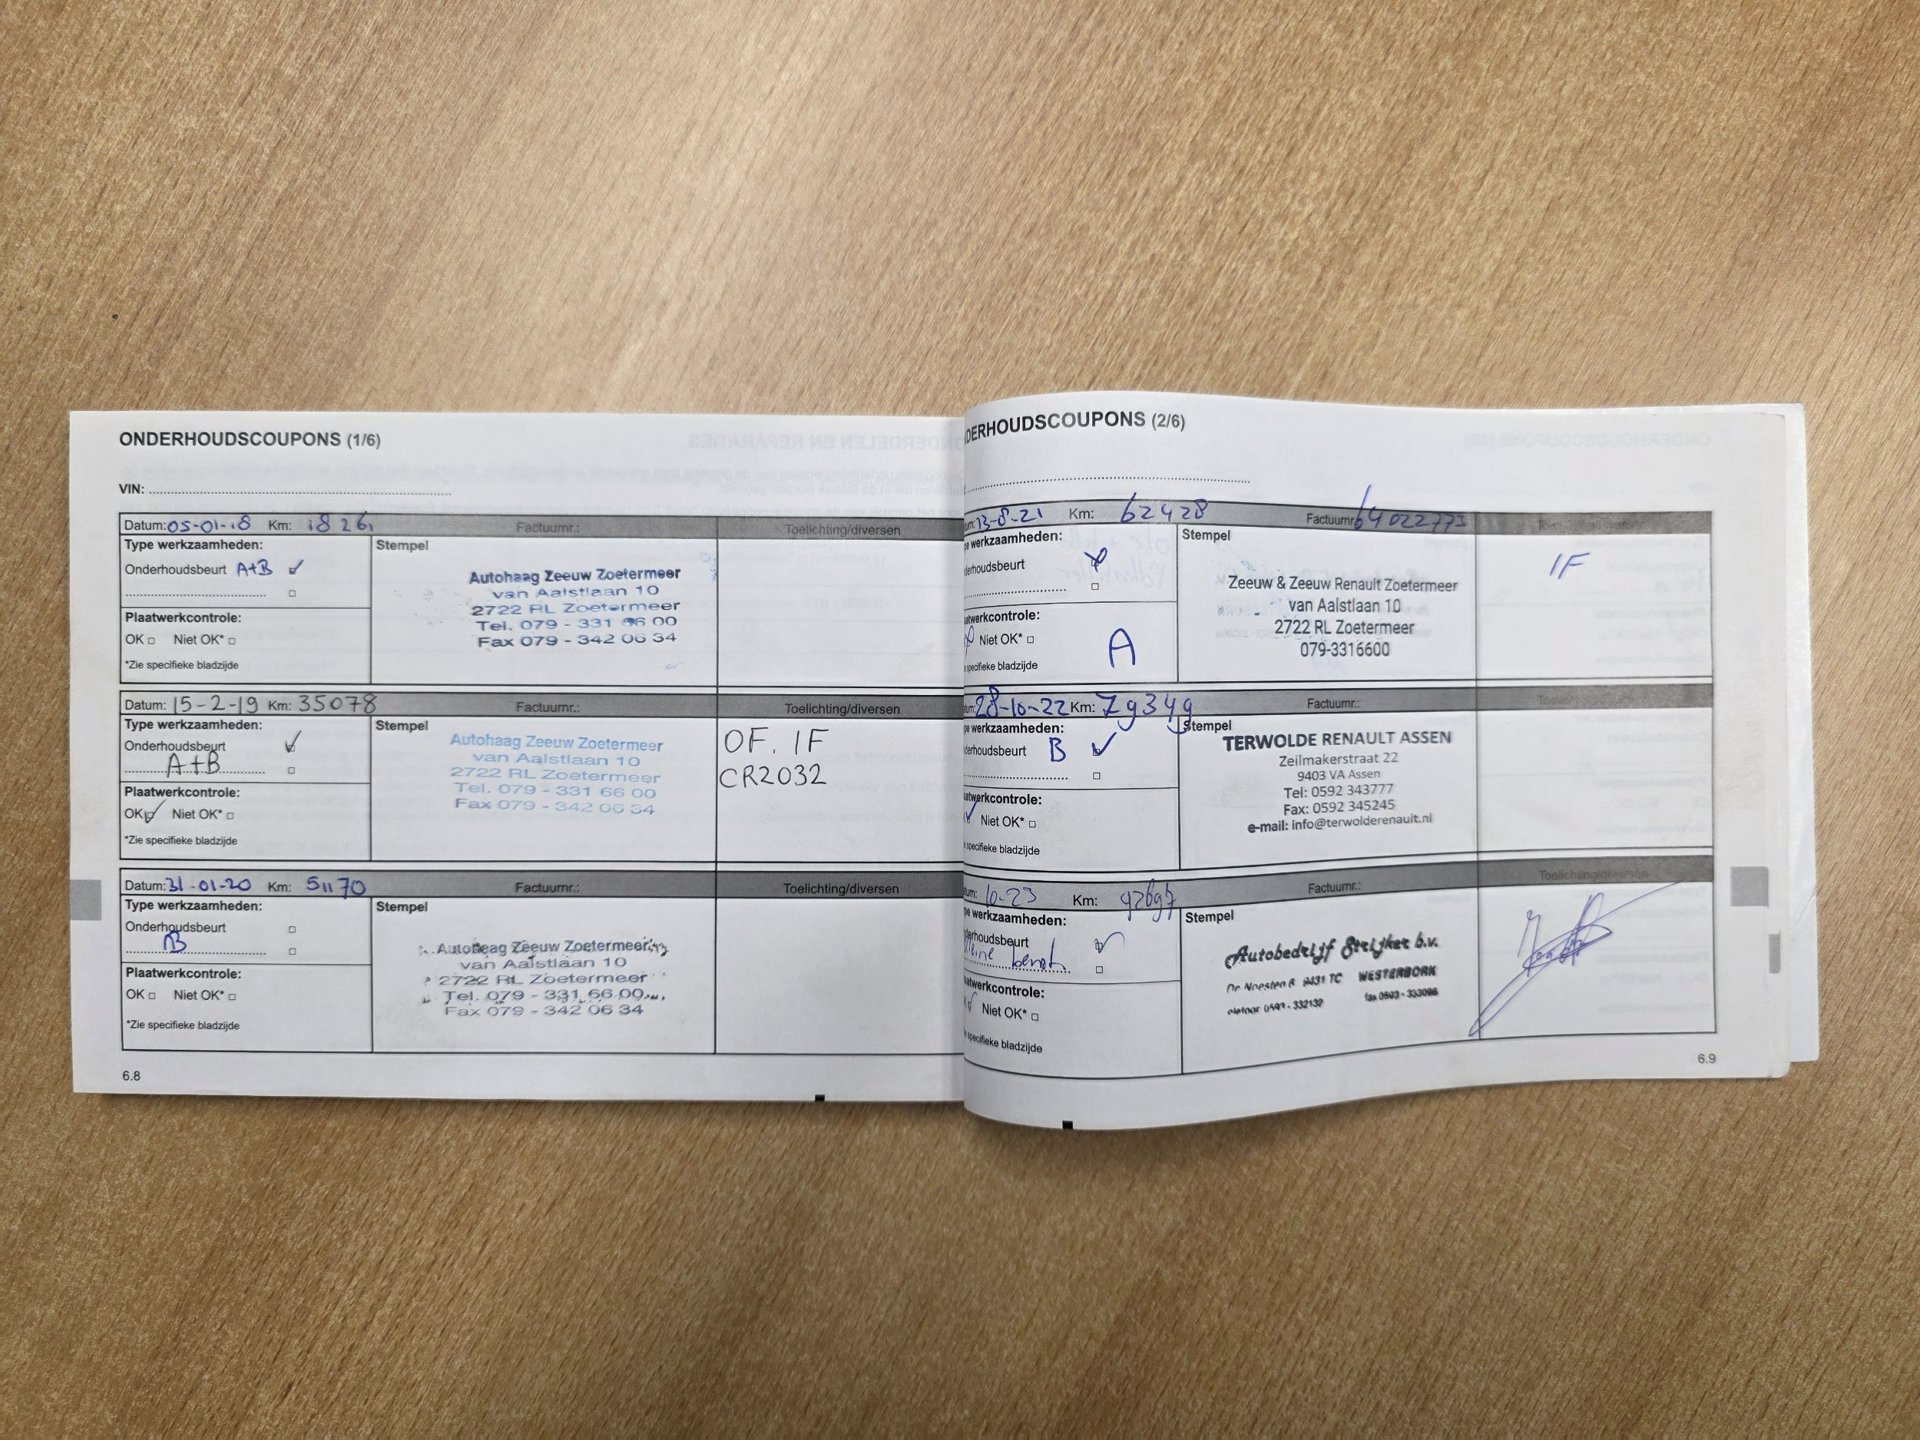 ONDERHOUDSCOUPONS (1/6)
VIN:
Datum: 05-01-18 Km: 18261 Factuurnr.: Toelichting/diversen
Type werkzaamheden:
Stempel
Onderhoudsbeurt A+B
Plaatwerkcontrole:
OK Niet OK*
*Zie specifieke bladzijde
Autohaag Zeeuw Zoetermeer
van Aalstlaan 10
2722 RL Zoetermeer
Tel. 079 - 331 66 00
Fax 079 - 342 06 34
Datum: 15-2-19 Km: 35078 Factuurnr.: Toelichting/diversen
Type werkzaamheden:
Stempel
Onderhoudsbeurt
A+B
Plaatwerkcontrole:
OK Niet OK*
*Zie specifieke bladzijde
Autohaag Zeeuw Zoetermeer
van Aalstlaan 10
2722 RL Zoetermeer
Tel. 079 - 331 66 00
Fax 079 - 342 06 34
OF. IF
CR2032
Datum: 31-01-20 Km: 51170 Factuurnr.: Toelichting/diversen
Type werkzaamheden:
Stempel
Onderhoudsbeurt
B
Plaatwerkcontrole:
OK Niet OK*
*Zie specifieke bladzijde
Autohaag Zeeuw Zoetermeer
van Aalstlaan 10
2722 RL Zoetermeer
Tel. 079 - 331 66 00
Fax 079 - 342 06 34
6.8
DERHOUDSCOUPONS (2/6)
13-8-21 Km: 62428 Factuurnr
werkzaamheden:
Stempel
derhoudsbeurt
aatwerkcontrole:
Niet OK*
specifieke bladzijde
A
Zeeuw & Zeeuw Renault Zoetermeer
van Aalstlaan 10
2722 RL Zoetermeer
079-3316600
IF
28-10-22 Km: 79349 Factuurnr.:
werkzaamheden:
Stempel
derhoudsbeurt B
aatwerkcontrole:
Niet OK*
specifieke bladzijde
TERWOLDE RENAULT ASSEN
Zeilmakerstraat 22
9403 VA Assen
Tel: 0592 343777
Fax: 0592 345245
e-mail: info@terwolderenault.nl
10-23 Km: 92697 Factuurnr.: Toelichting/diversen
pe werkzaamheden:
Stempel
derhoudsbeurt
aatwerkcontrole:
Niet OK*
specifieke bladzijde
Autobedrijf Strijker b.v.
9431 TC WESTERBORK
6.9